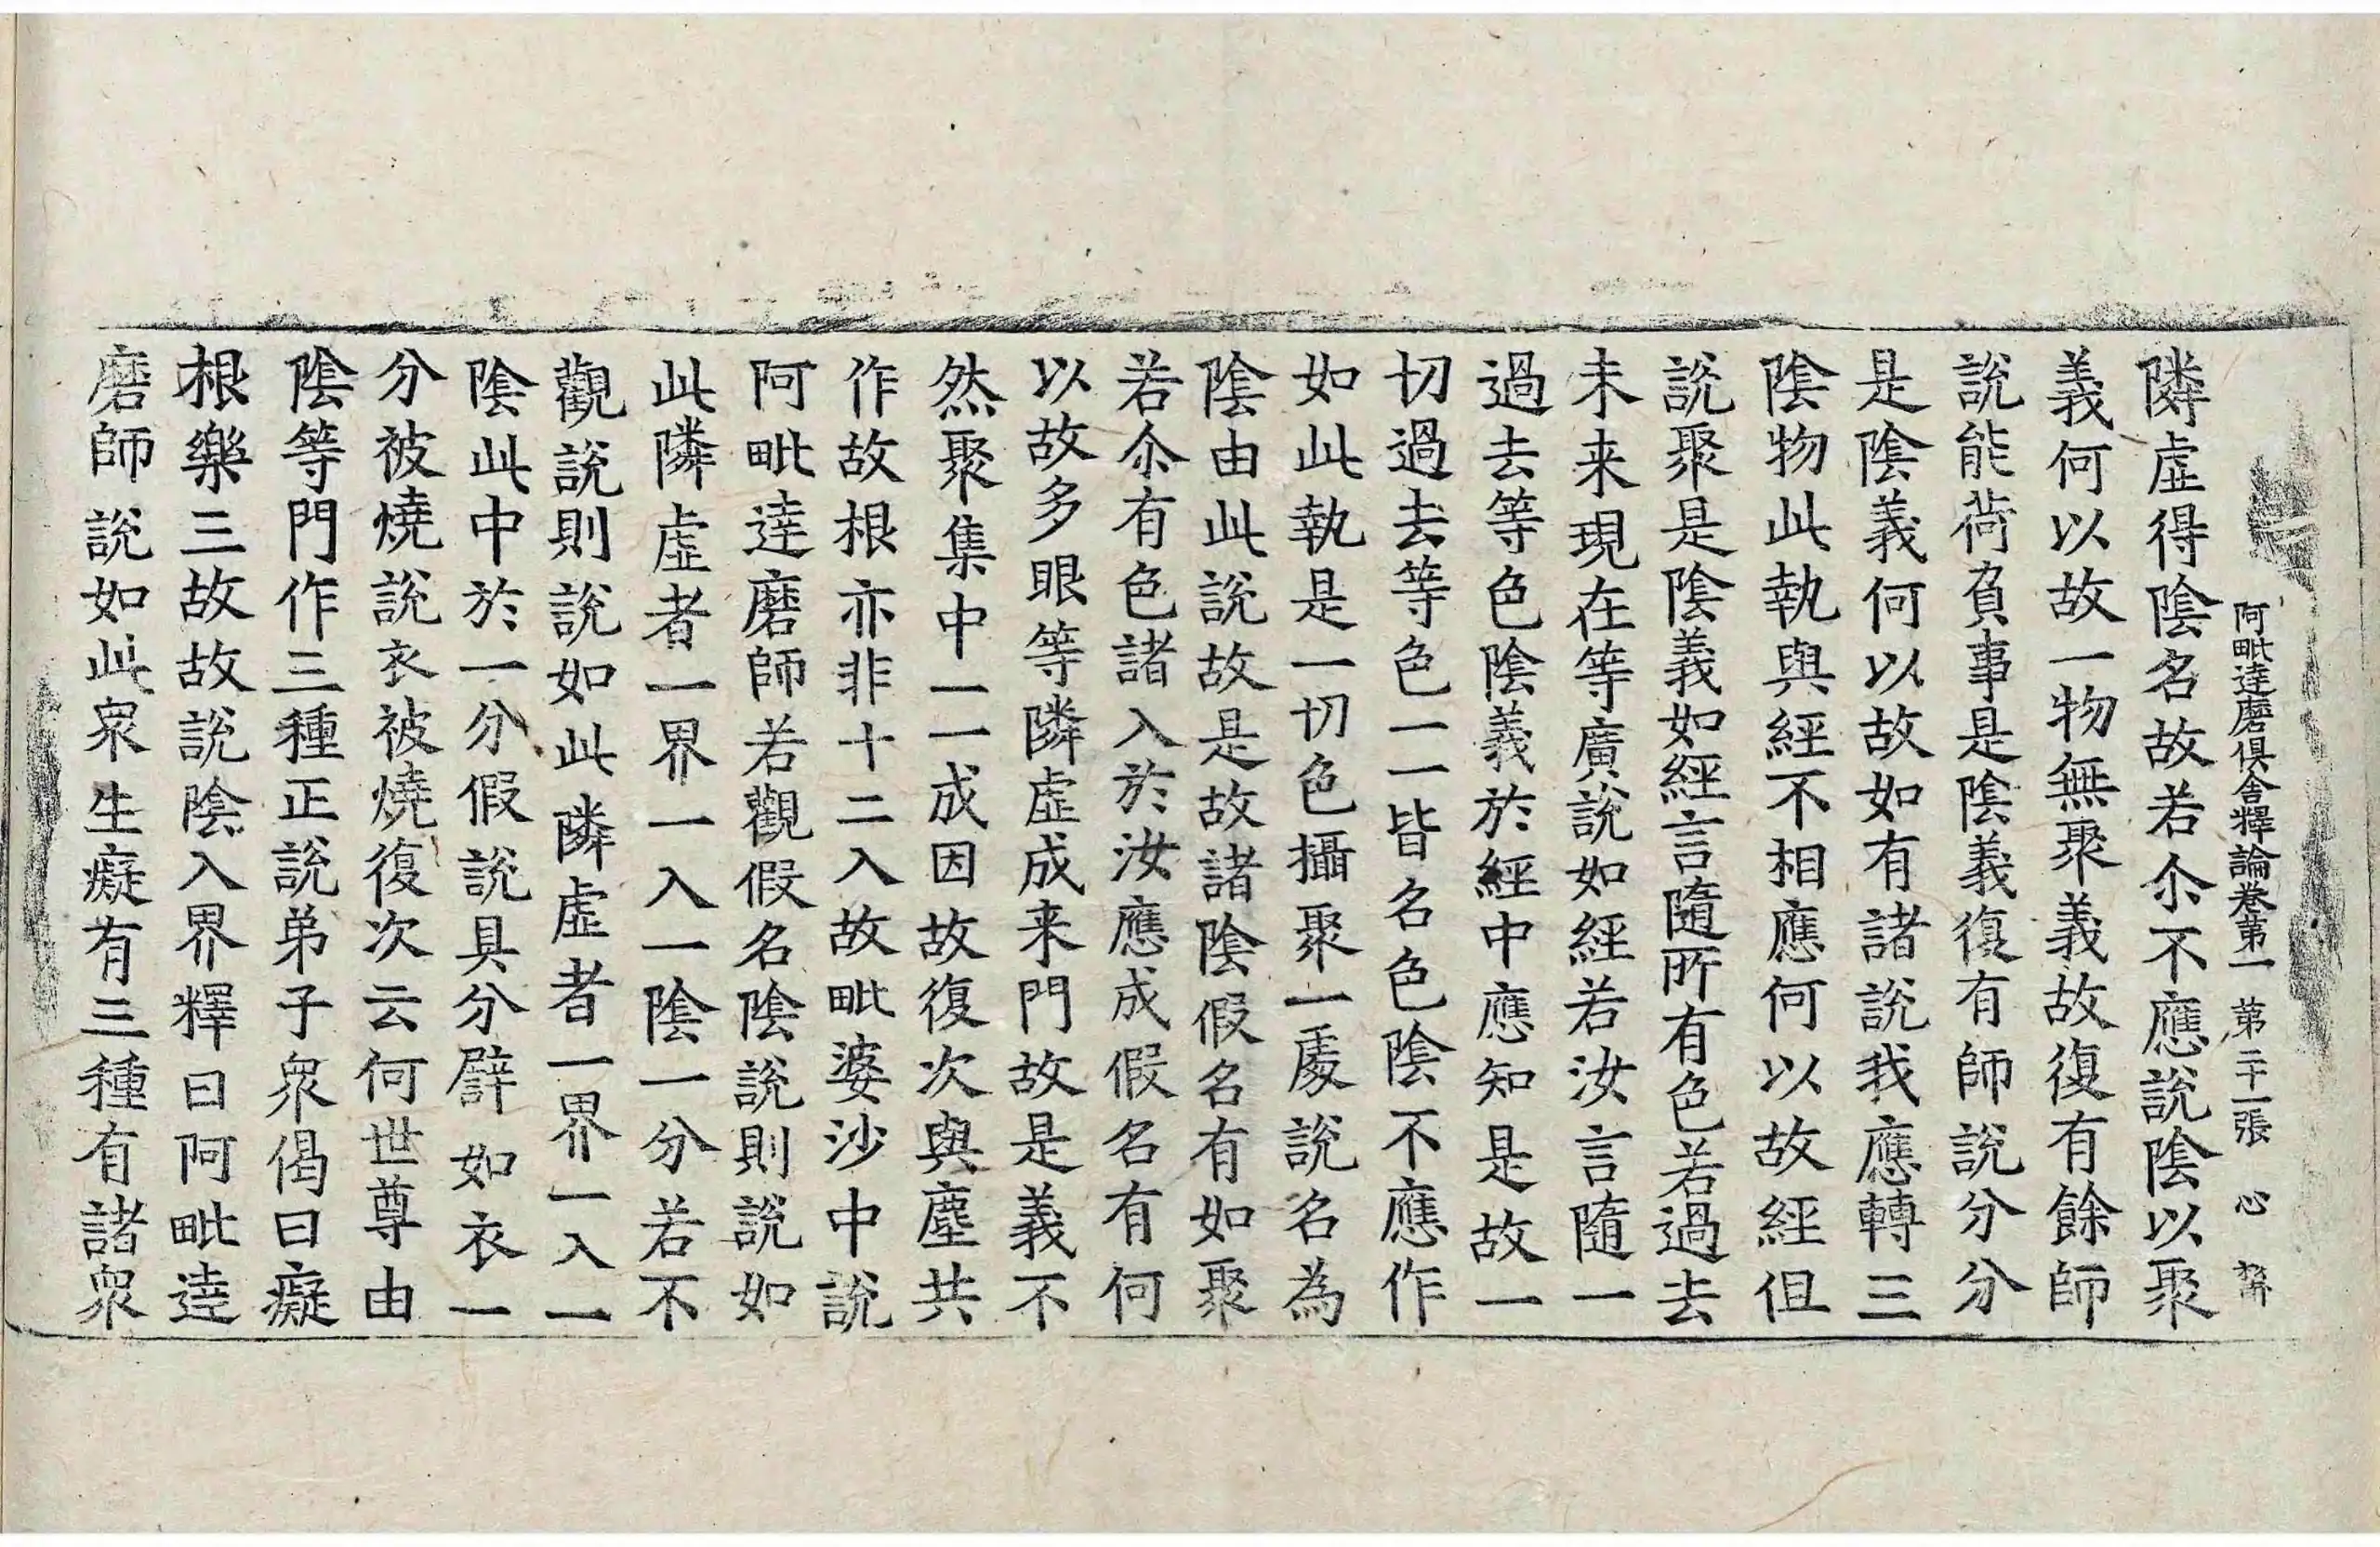 阿毗達磨俱舍釋論卷第一 第二十一張 心
隣虛得陰名故若尒不應說陰以聚
義何以故一物無聚義故復有餘師
說能荷負事是陰義復有師說分分
是陰義何以故如有諸說我應轉三
陰物此執與經不相應何以故經但
說聚是陰義如經言隨所有色若過去
未来現在等廣說如經若汝言隨一
過去等色陰義於經中應知是故一
切過去等色一一皆名色陰不應作
如此執是一切色攝聚一處說名為
陰由此說故是故諸陰假名有如聚
若尒有色諸入於汝應成假名有何
以故多眼等隣虛成来門故是義不
然聚集中一一成因故復次與塵共
作故根亦非十二入故毗婆沙中說
阿毗達磨師若觀假名陰說則說如
此隣虛者一界一入一陰一分若不
觀說則說如此隣虛者一界一入一
陰此中於一分假說具分譬如衣一
分被燒說衣被燒復次云何世尊由
陰等門作三種正說弟子衆偈曰癡
根樂三故故說陰入界釋曰阿毗達
磨師說如此衆生癡有三種有諸衆